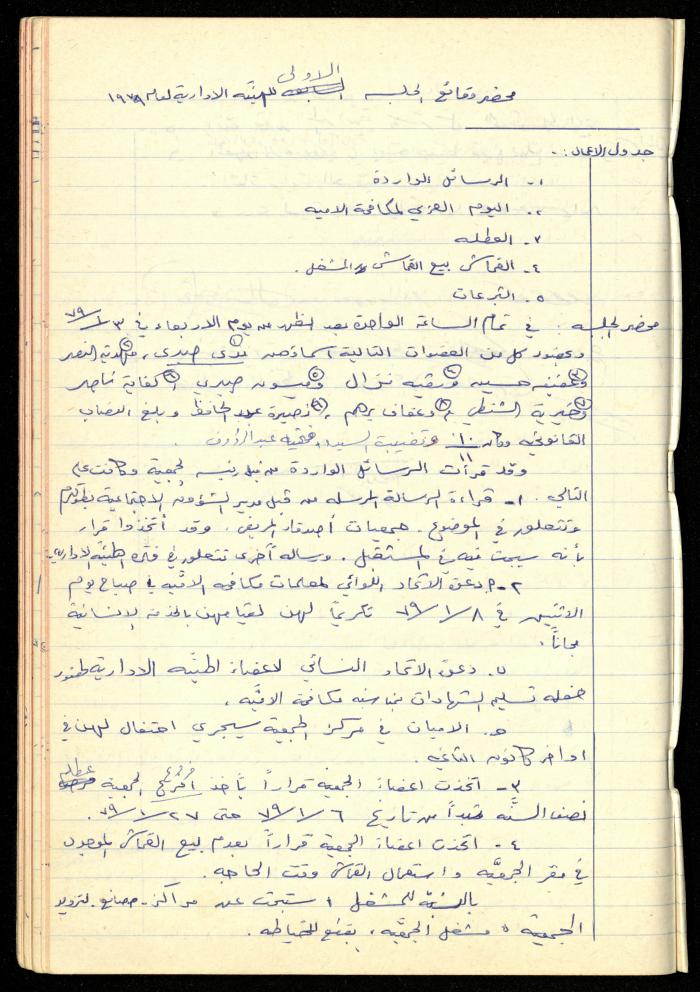 الاولى
محضر وقائع الجلسه للهيئه الادارية لعام ١٩٧٩
جدول الاعمال :-
١- الرسائل الواردة
٢- اليوم العربي لمكافحة الاميه
٣- العطله
٤- القماش بيع القماش المشغل .
٥- التبرعات
محضر الجلسه : في تمام الساعة الواحدة بعد الظهر من يوم الاربعاء في ٣/١/٧٩
وبحضور كل من العضوات التالية اسماؤهن ندى صبري ، مهدية النصر
وعفيفه حسين ورقيه نزال وميسون صبري ، كفاية ناصر
وخيرية الشنطي ، وعفاف برهم ، نصيرة عبد الحافظ وبلغ النصاب
القانوني وكان ١٠/١١ وتغيبت السيدة فتحيه عبد الرؤوف .
وقد قرأت الرسائل الواردة من قبل رئيسه الجمعية وكانت على
التالي . ١- قراءة الرسالة المرسله من قبل مدير الشؤون الاجتماعية بطولكرم
وتتعلق في الموضوع . جمعيات أصدقاء المريض . وقد أتخذوا قرار
بأنه سيبحث فيه في المستقبل . ورساله أخرى تتعلق في فتره الهيئه الاداريه
٢- دعوة الاتحاد اللوائي لمعلمات مكافحه الاميه في صباح يوم
الاثنين في ٨/١/٧٩ تكريماً لهن لقيامهن بالخدمة الإنسانية
مجاناً .
ب. دعوة الاتحاد النسائي لاعضاء الهيئه الادارية لحضور
حفله تسليم الشهادات بمناسبه مكافحة الاميه .
ج. الاميات في مركز الجمعية سيجري احتفال لهن في
اواخر كانون الثاني .
٣- اتخذت اعضاء الجمعية قراراً بأخذ الجمعية عطله
نصف السنه تبدأ من تاريخ ٦/١/٧٩ حتى ٢٧/١/٧٩ .
٤- اتخذت اعضاء الجمعية قراراً بعدم بيع القماش الموجود
في مقر الجمعيه واستعمال القماش وقت الحاجه .
بالنسبة للمشغل ، ستبحث عن مراكز - مصانع لتزويد
الجمعية ، مشغل الجمعيه ، بقطع للخياطه .